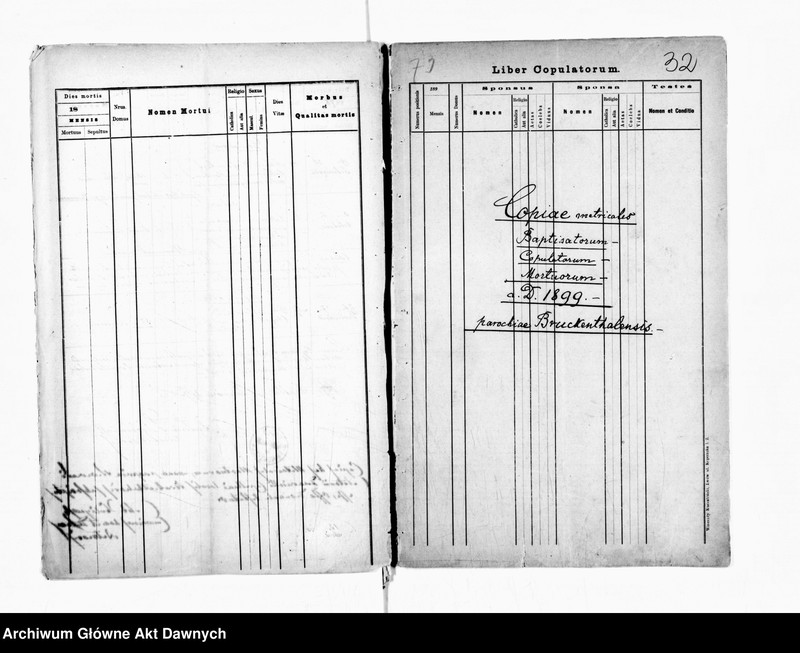 Dies mortis
18
MENSIS
Mortuus Sepultus
Nrus Domus
Nomen Mortui
Religio
Catholica
Aut alia
Sexus
Mascul.
Femina
Dies Vitæ
Morbus
et
Qualitas mortis
79
Liber Copulatorum.
32
Numerus positionis
189
Mensis
Numerus Domus
Sponsus
Nomen
Religio
Catholica
Aut alia
Aetas
Caelebs
Viduus
Sponsa
Nomen
Religio
Catholica
Aut alia
Aetas
Caelebs
Vidua
Testes
Nomen et Conditio
Copiae metricales
Baptisatorum –
Copulatorum –
Mortuorum –
a. D. 1899. –
parochiae Bruckenthalensis. –
Archiwum Główne Akt Dawnych